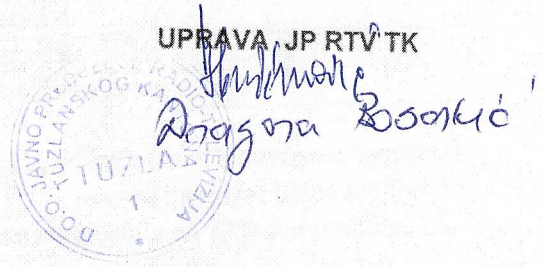 UPRAVA JP RTV TK
Dragana
D.O.O. JAVNO PREDUZEĆE RADIO-TELEVIZIJA
TUZLANSKOG KANTONA
TUZLA
1